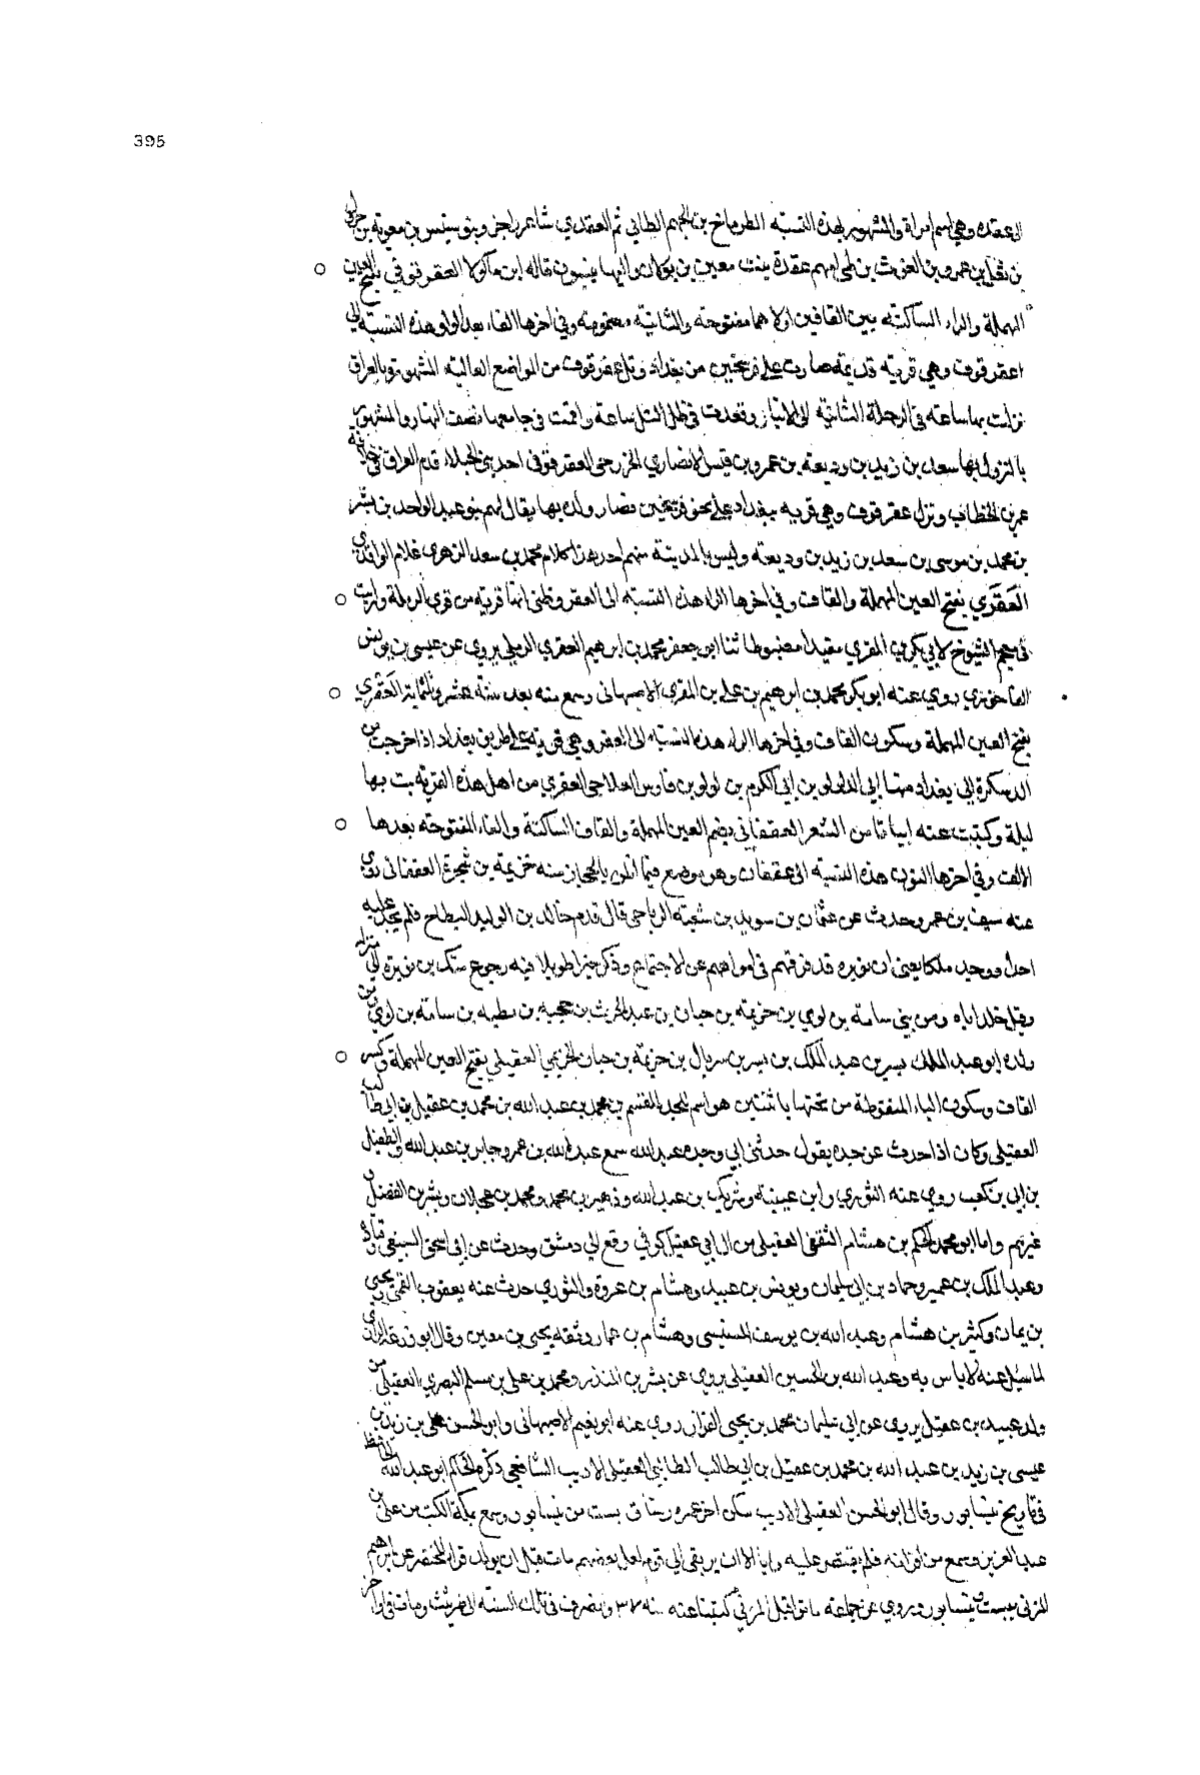 395
الى عقده وهي اسم امراة والمشهور بهذه النسبة الطرماح بن الجهم الطائي ثم العقدي شاعر راجز وبنو سنبس بن معوية بن جرول
بن ثعل بن عمرو بن الغوث بن طي امهم عقدة بنت معبر بن بولان واليها ينسبون قاله ابن ماكولا العقرقوفي بفتح العين
المهملة والراء الساكنه بين القافين اولاهما مفتوحة والثانية مضمومة وفي اخرها الفاء بعد الواو هذه النسبة الى
عقرقوف وهي قرية قديمة صارت على فرسخين من بغداد وتل عقرقوف من المواضع العالية المشهورة بالعراق
نزلت بها ساعة في الرحلة الثانية الى الانبار وقعدت في ظل التل ساعة واقمت في جامعها نصف النهار والمشهور
بالنزول بها سعد بن زيد بن وديعة بن عمرو بن قيس الانصاري الخزرجي العقرقوفي احد بني الحبلاء قدم العراق في خلافة
عمر بن الخطاب ونزل عقرقوف وهي قرية ببغداد على نحو فرسخين فصار ولده بها يقال لهم بنو عبد الواحد بن بشير
بن محمد بن موسى بن سعد بن زيد بن وديعة وليس بالمدينة منهم احد هذا كلام محمد بن سعد الزهري غلام الواقدي
العَقَري بفتح العين المهملة والقاف وفي اخرها الراء هذه النسبة الى العقر وظني انها قرية من قرى الرملة ورايت
في معجم الشيوخ لابي بكر بن المقري مقيدا مضبوطا ثنا ابو جعفر محمد بن ابرهيم العقري الرملي يروي عن عيسى بن يونس
الفاخوري روى عنه ابو بكر محمد بن ابرهيم بن علي بن المقري الاصبهاني وسمع منه بعد سنة عشر وثلثماية العَقْري
بفتح العين المهملة وسكون القاف وفي اخرها الراء هذه النسبة الى العقر وهي قرية على طريق بغداد اذا خرجت من
الدسكرة الى بغداد منها ابي الدر لولو بن ابي الكرم بن لولو بن فارس العقري من اهل هذه القرية بت بها
ليلة وكتبت عنه ابياتا من الشعر العقفاني بضم العين المهملة والقاف الساكنة والفاء المفتوحة بعدها
الالف وفي اخرها النون هذه النسبة الى عقفان وهو موضع فيما اظن بالحجاز منه خزيمة بن شجرة العقفاني روى
عنه سيف بن عمر وحدث عن عثمان بن سويد بن شعبة الرياحي قال قدم خالد بن الوليد البطاح فلم يجد عليه
احدا ووجد ملكا يعني ابن نويره قد فرقهم في اموالهم عن الاجتماع وذكر خبرا طويلا فيه رجوع ملك بن نويرة الى منزله
وقتل خلد اياه ومن بني سامة بن لوي بن خزيمة بن حيان بن عبد الحرث بن بن سامة بن لوي من
ولده ابو عبد الملك بسر بن عبد الملك بن بسر بن سربال بن خزيمة بن حيان الخزيمي العقيلي بفتح العين المهملة وكسر
القاف وسكون الياء المنقوطة من تحتها باثنتين هو اسم لجد القسم بن محمد بن عبد الله بن محمد بن عقيل بن ابي طالب
العقيلي وكان اذا حدث عن جده يقول حدثني ابي وجده عبد الله سمع عبد الله بن عمر وجابر بن عبد الله والطفيل
بن ابي بن كعب روى عنه الثوري وابن عيينة وشريك بن عبد الله وزهير بن محمد ومحمد بن عجلان وبشر بن الفضل و
غيرهم واما ابو محمد الحكم بن هشام الثقفي العقيلي من ال ابي عقيل كوفي وقع الى دمشق وحدث عن ابي اسحق السبيعي وقتادة
وعبد الملك بن عمير وحماد بن ابي سليمان ويونس بن عبيد وهشام بن عروة والثوري حدث عنه يعقوب القمي ويحيى
بن يمان وكثير بن هشام وعبد الله بن يوسف التنيسي وهشام بن عمار وثقه يحيى بن معين وقال ابو زرعة الرازي
لما سئل عنه لا باس به وعبد الله بن الحسين العقيلي يروي عن بشر بن المنذر ومحمد بن علي بن مسلم البصري العقيلي من
ولد عبيد بن عقيل يروي عن ابي سليمان محمد بن يحيى القزاز روى عنه ابو نعيم الاصبهاني وابو الحسن علي بن زيد بن
عيسى بن زيد بن عبد الله بن محمد بن عقيل بن ابي طالب الطالبي العقيلي الاديب الشافعي ذكره الحاكم ابو عبد الله الحافظ
في تاريخ نيسابور وقال ابو الحسن العقيلي الاديب سكن اخر عمره رستاق بست من نيسابور وسمع بمكة الكتب من علي بن
عبد العزيز وسمع من اقرانه فلم يقتصر عليه وابا الا ان يرتقي الى قوم لعل بعضهم مات قبل ان يولد قراء المختصر عن ابرهيم
المزني ببست ونيسابور وروى عن جماعة ماتوا قبل المزني كتبنا عنه سنه ٣٧ وانصرف في تلك السنة الى طريثيث ومات في اواخر